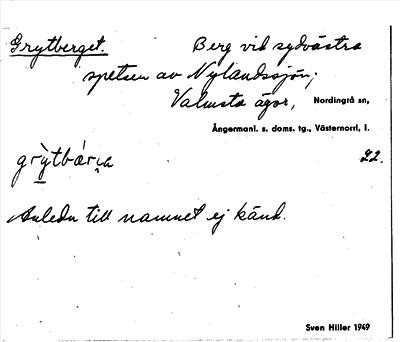 Grytberget. Berg vid sydvästra
spetsen av Nylandssjön;
Valmsta ägor, Nordingrå sn,
Ångermanl. s. doms. tg., Västernorrl, l.
22.
Anledn till namnet ej känd.
Sven Hiller 1949